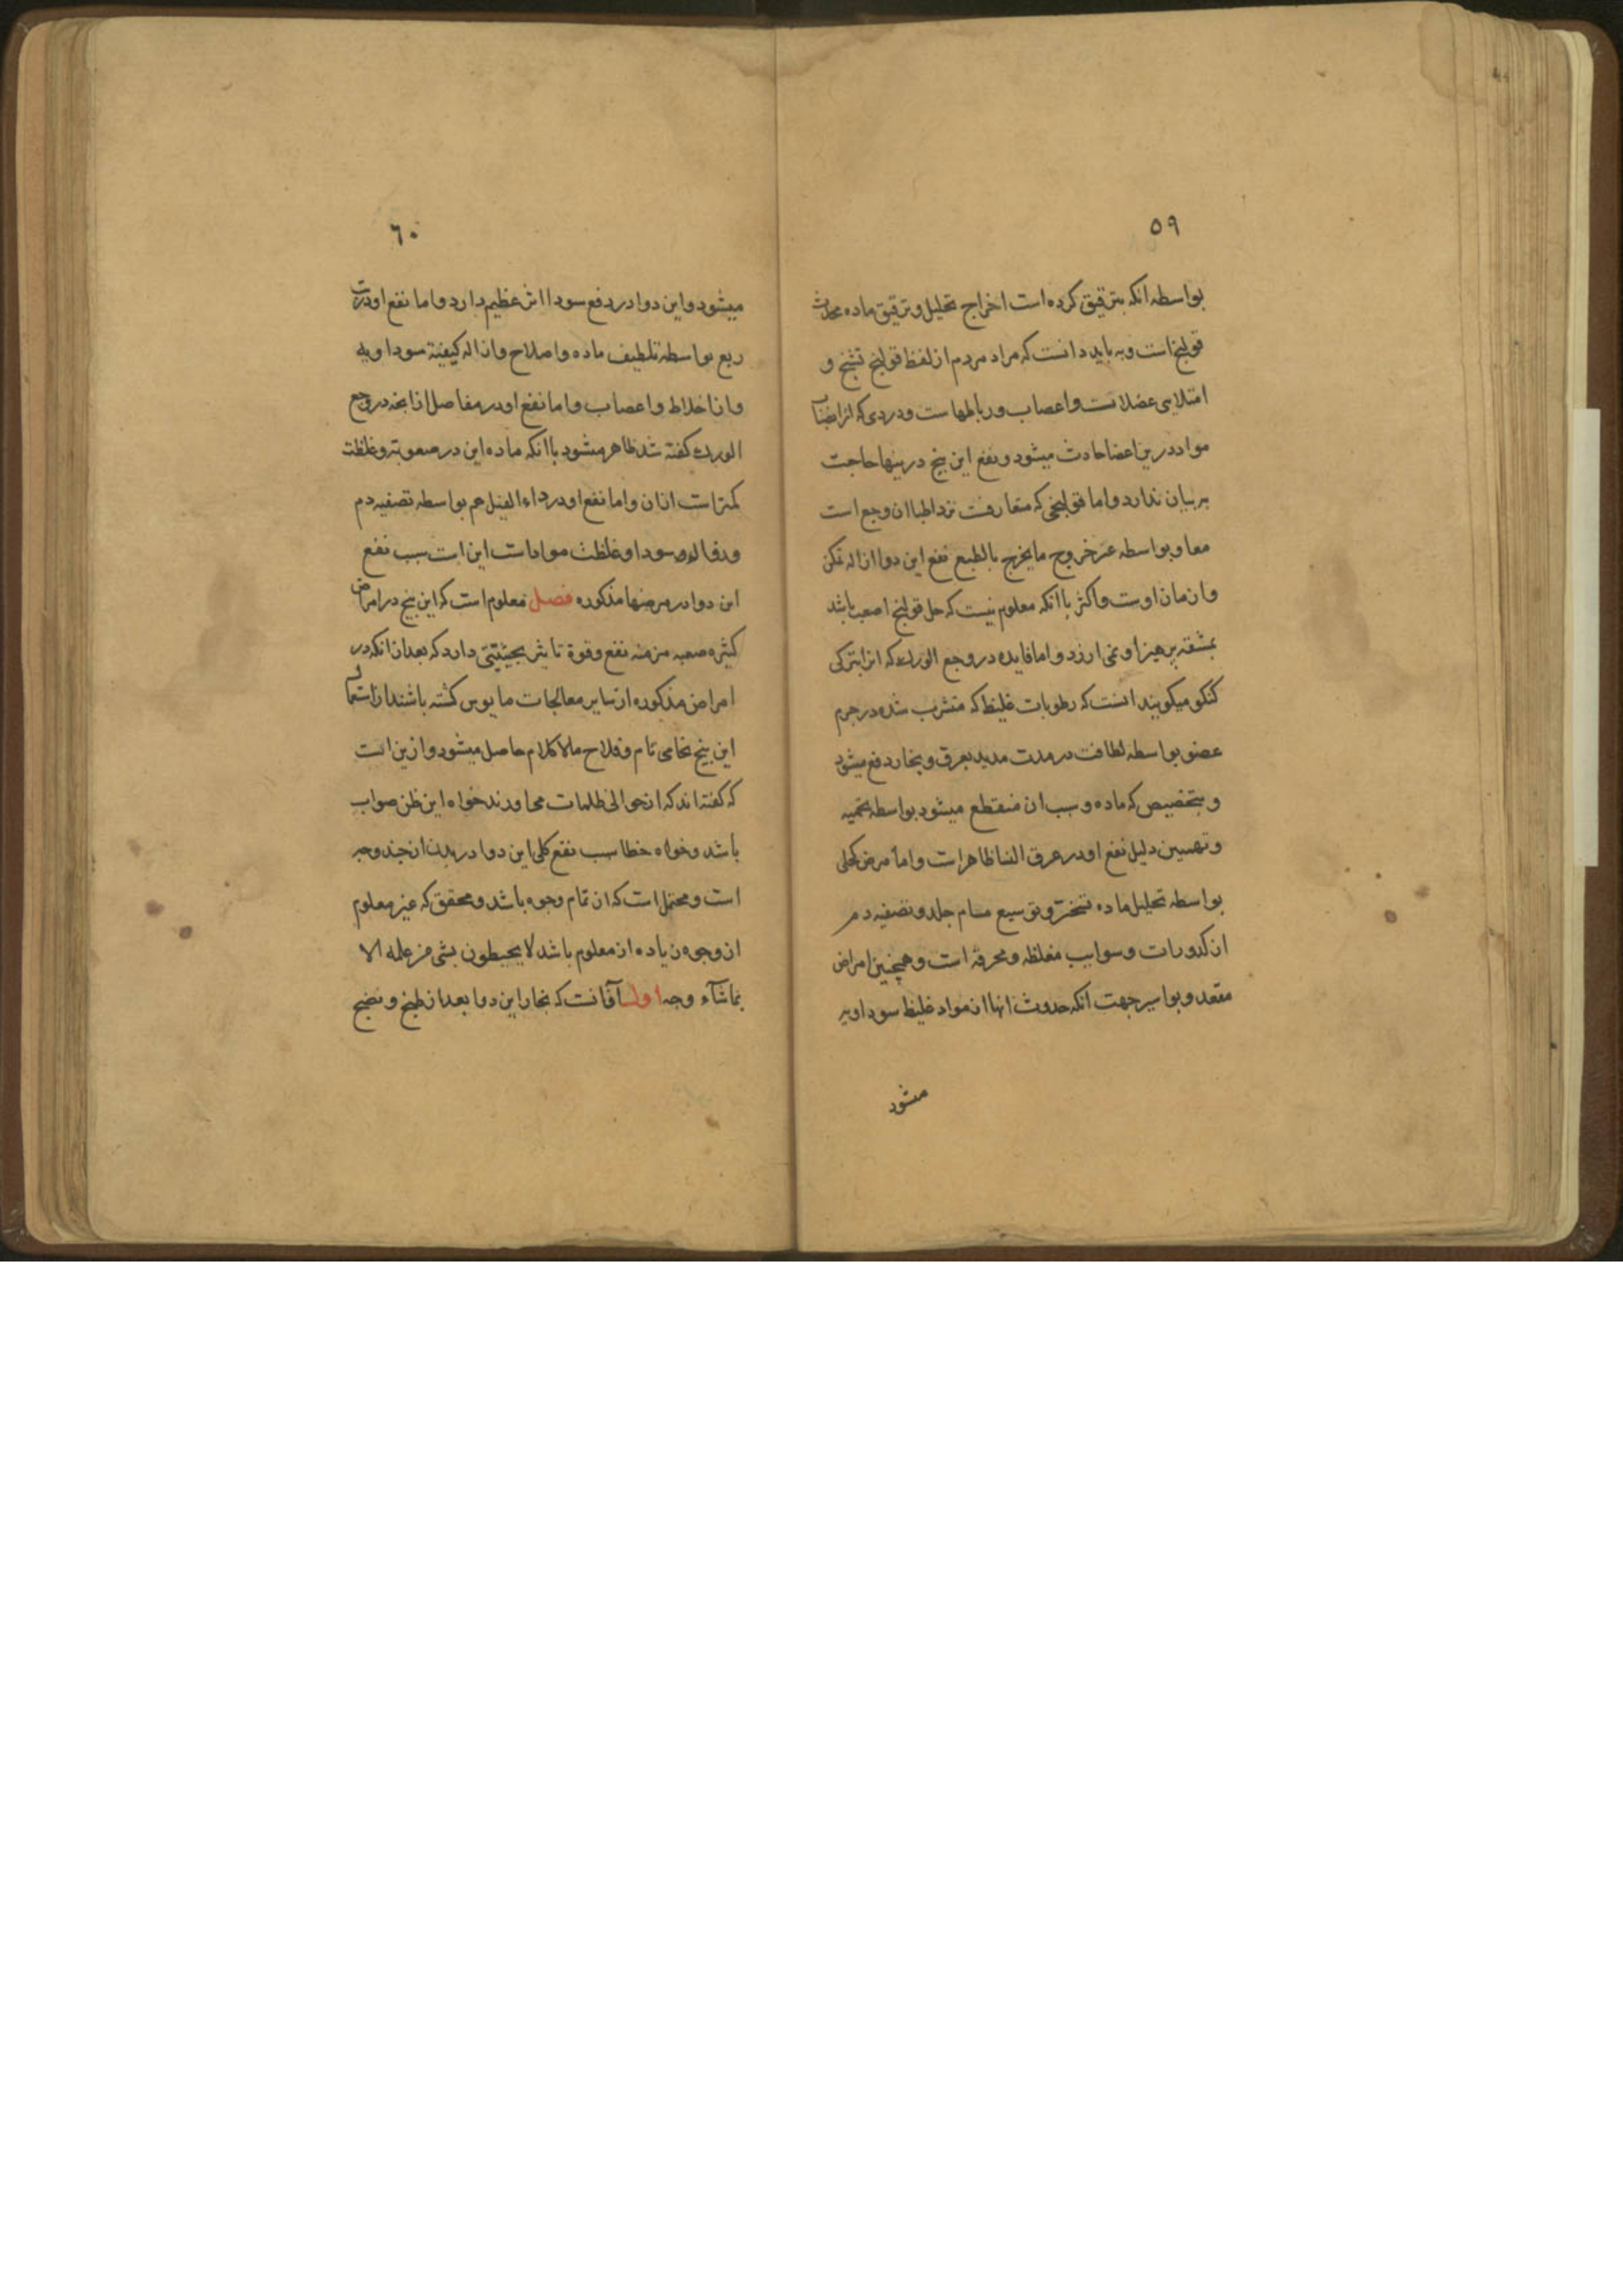 ۵۹
بواسطه انکه بترقیق کرده است اخراج تحلیل و ترقیق ماده محدث
قولنج است و به باید دانست که مراد مردم از لفظ قولنج تشنج و
امتلای عضلات و اعصاب و رباطهاست و دردی که از انصباب
مواد درین اعضا حادث میشود و نفع این بیخ درینها حاجت
بربیان ندارد و اما قولنجی که متعارفست نزد اطبا ان وجع است
معا و بواسطه عسر خروج مایخرج بالطبع نفع این دوا ازاله تمکن
وازمان اوست واکثر باانکه معلوم نیست که حل قولنج اصعب باشد
بمشقته پرهیز او نمی ارزد و اما فایده در وجع الورک که انرا بترکی
کنکو میکویند انست که رطوبات غلیظ که متشرب شده در جرم
عضو بواسطه لطافت در مدت مدید بعرق و بخار دفع میشود
و بتخصیص که ماده و سبب ان منقطع میشود بواسطه تحمیه
و دلیل نفع او در عرق النسا ظاهر است و اما مرض کجلی
بواسطه تحلیل ماده و توسیع مسام جلد و تصفیه دم
از کدورات و سوایب مغلظه و محرقه است و همچنین امراض
مقعد و بواسیر جهت انکه حدوث انها از مواد غلیظ سوداویه
میشود
۶۰
میشود و این دوا در دفع سودا اثر عظیم دارد و اما نفع او درتب
ربع بواسطه تلطیف ماده و اصلاح وازاله کیفیة سوداویه
وازاخلاط واعصاب و اما نفع او در مفاصل از انچه در وجع
الورک کفته شد ظاهر میشود باانکه ماده این در صعوبت و غلظت
کمتر است ازان و اما نفع او در داء الفیل هم بواسطه تصفیه دم
ودفا سودا و غلظت مواد است این است سبب نفع
این دوا در مرضها مذکوره فصل معلوم است که این بیخ در امراض
کثیره صعبه مزمنه نفع وقوة تاثیر بحیثیتی دارد که بعد از انکه در
امراض مذکوره از سایر معالجات مایوس کشته باشند از استعمال
این بیخ نجاحی تام و فلاح ملاکلام حاصل میشود و ازین است
که کفته اند که از حوالی ظلمات می اورند خواه این ظن صواب
باشد و خواه خطا سبب نفع کلی این دوا در بدن از چند وجه
است و محتمل است که ان تمام وجوه باشد و محقق که غیر معلوم
از وجوه زیاده از معلوم باشد لا یحیطون بشی من علمه الا
بماشآء وجه اول آنست که بخار این دوا بعد از طبخ و نضج